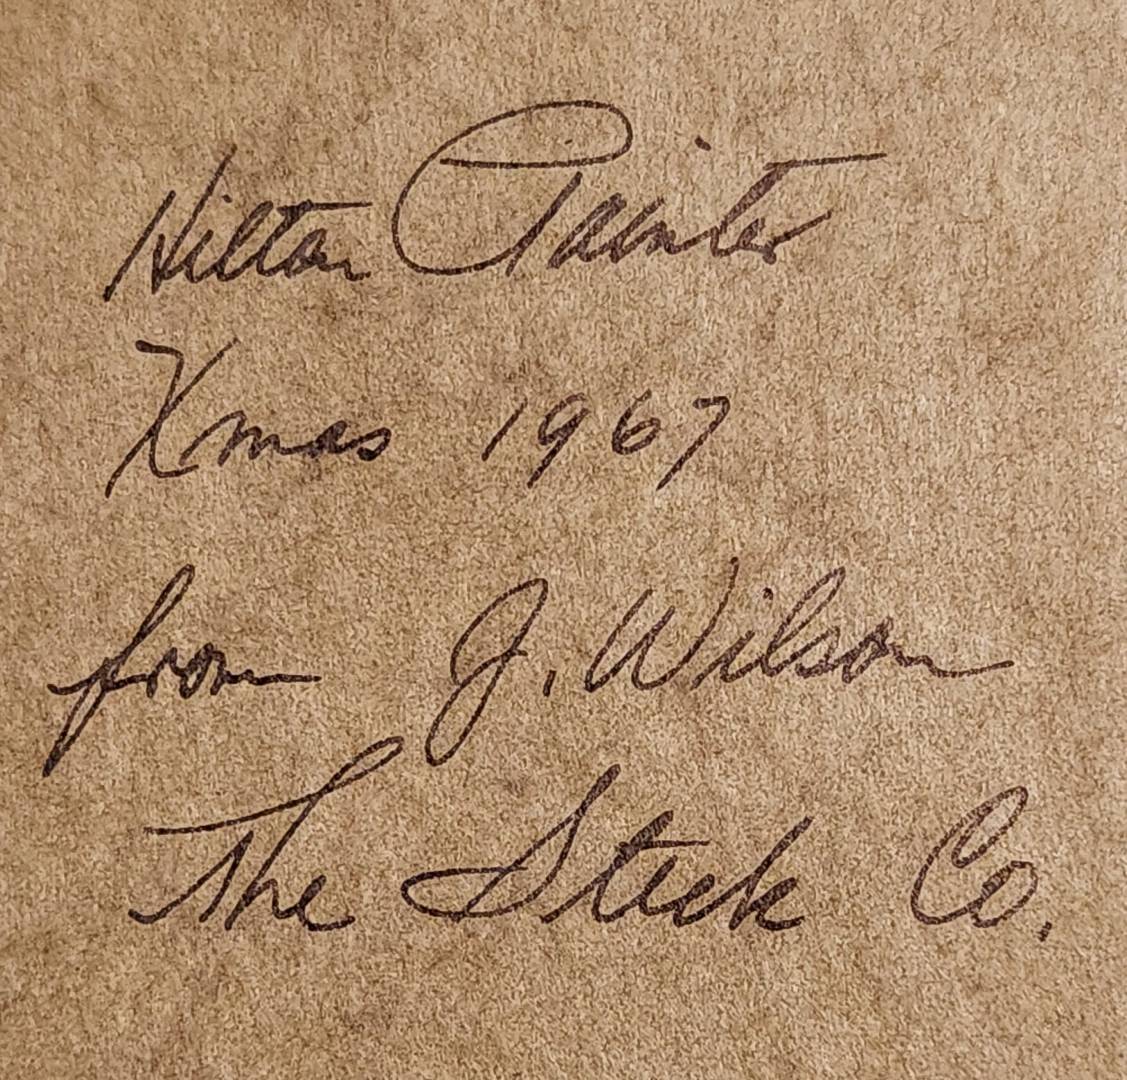 Hilton Painter
Xmas 1967
from J. Wilson
The Steck Co.